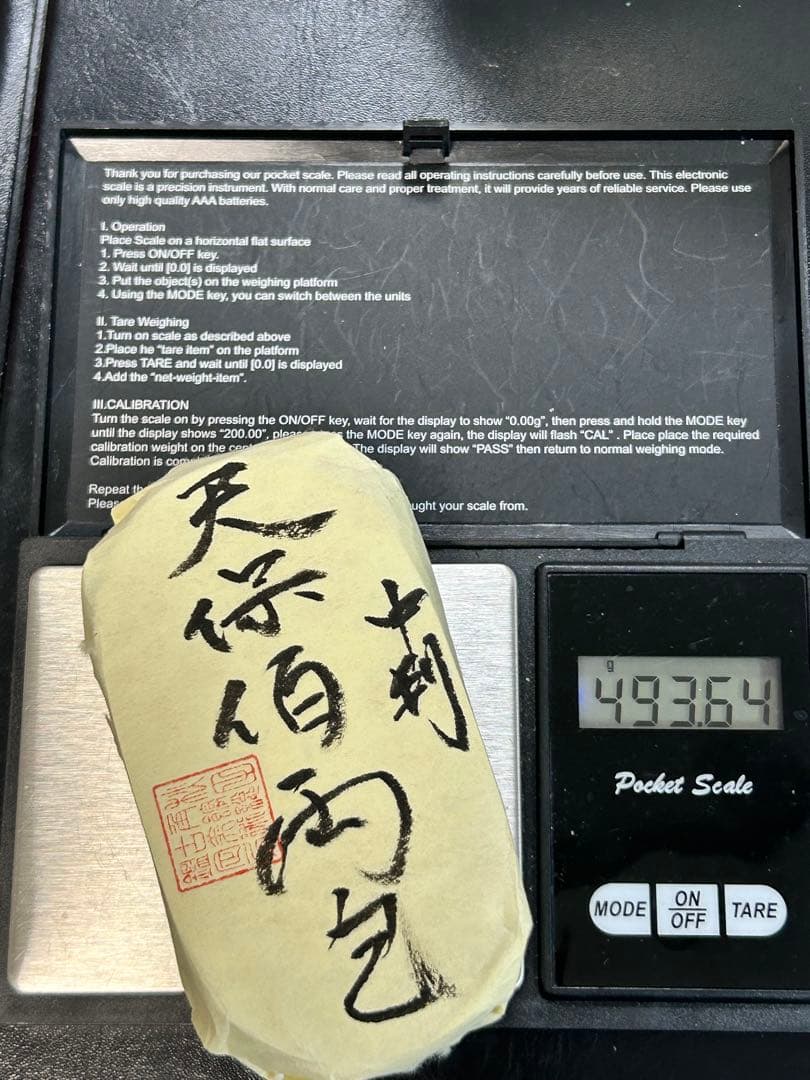 Thank you for purchasing our pocket scale. Please read all operating instructions carefully before use. This electronic
scale is a precision instrument. With normal care and proper treatment, it will provide years of reliable service. Please use
only high quality AAA batteries.
I. Operation
Place Scale on a horizontal flat surface
1. Press ON/OFF key.
2. Wait until [0.0] is displayed
3. Put the object(s) on the weighing platform
4. Using the MODE key, you can switch between the units
II. Tare Weighing
1.Turn on scale as described above
2.Place he "tare item" on the platform
3.Press TARE and wait until [0.0] is displayed
4.Add the "net-weight-item".
III.CALIBRATION
Turn the scale on by pressing the ON/OFF key, wait for the display to show "0.00g", then press and hold the MODE key
until the display shows "200.00", the MODE key again, the display will flash "CAL" . Place place the required
calibration weight on the The display will show "PASS" then return to normal weighing mode.
Calibration is
Repeat
your scale from.
小判
天保佰両包
g
493.64
Pocket Scale
MODE
ON
OFF
TARE